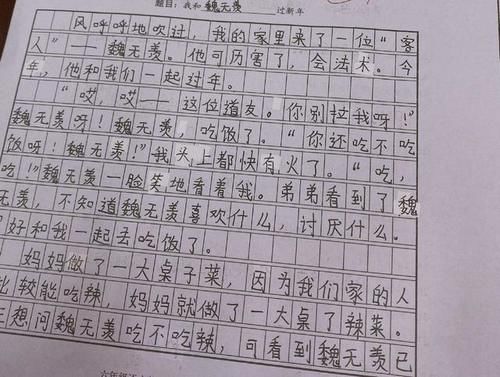 题目：我和魏无羡过新年
风呼呼地吹过，我的家里来了一位“客
人”——魏无羡。他可厉害了，会法术。今
年，他和我们一起过年。
“哎，哎——这位道友。你别拉我呀！”
魏无羡呀！魏无羡，吃饭了。“你还吃不吃
饭呀！魏无羡！”我头上都快有火了。“吃，
吃！”魏无羡一脸笑地看着我。弟弟看到了魏
无羡，不知道魏无羡喜欢什么，讨厌什么。
好和我一起去吃饭了。
妈妈做了一大桌子菜，因为我们家的人
比较能吃辣，妈妈就做了一大桌了辣菜。
想问魏无羡吃不吃辣，可看到魏无羡已